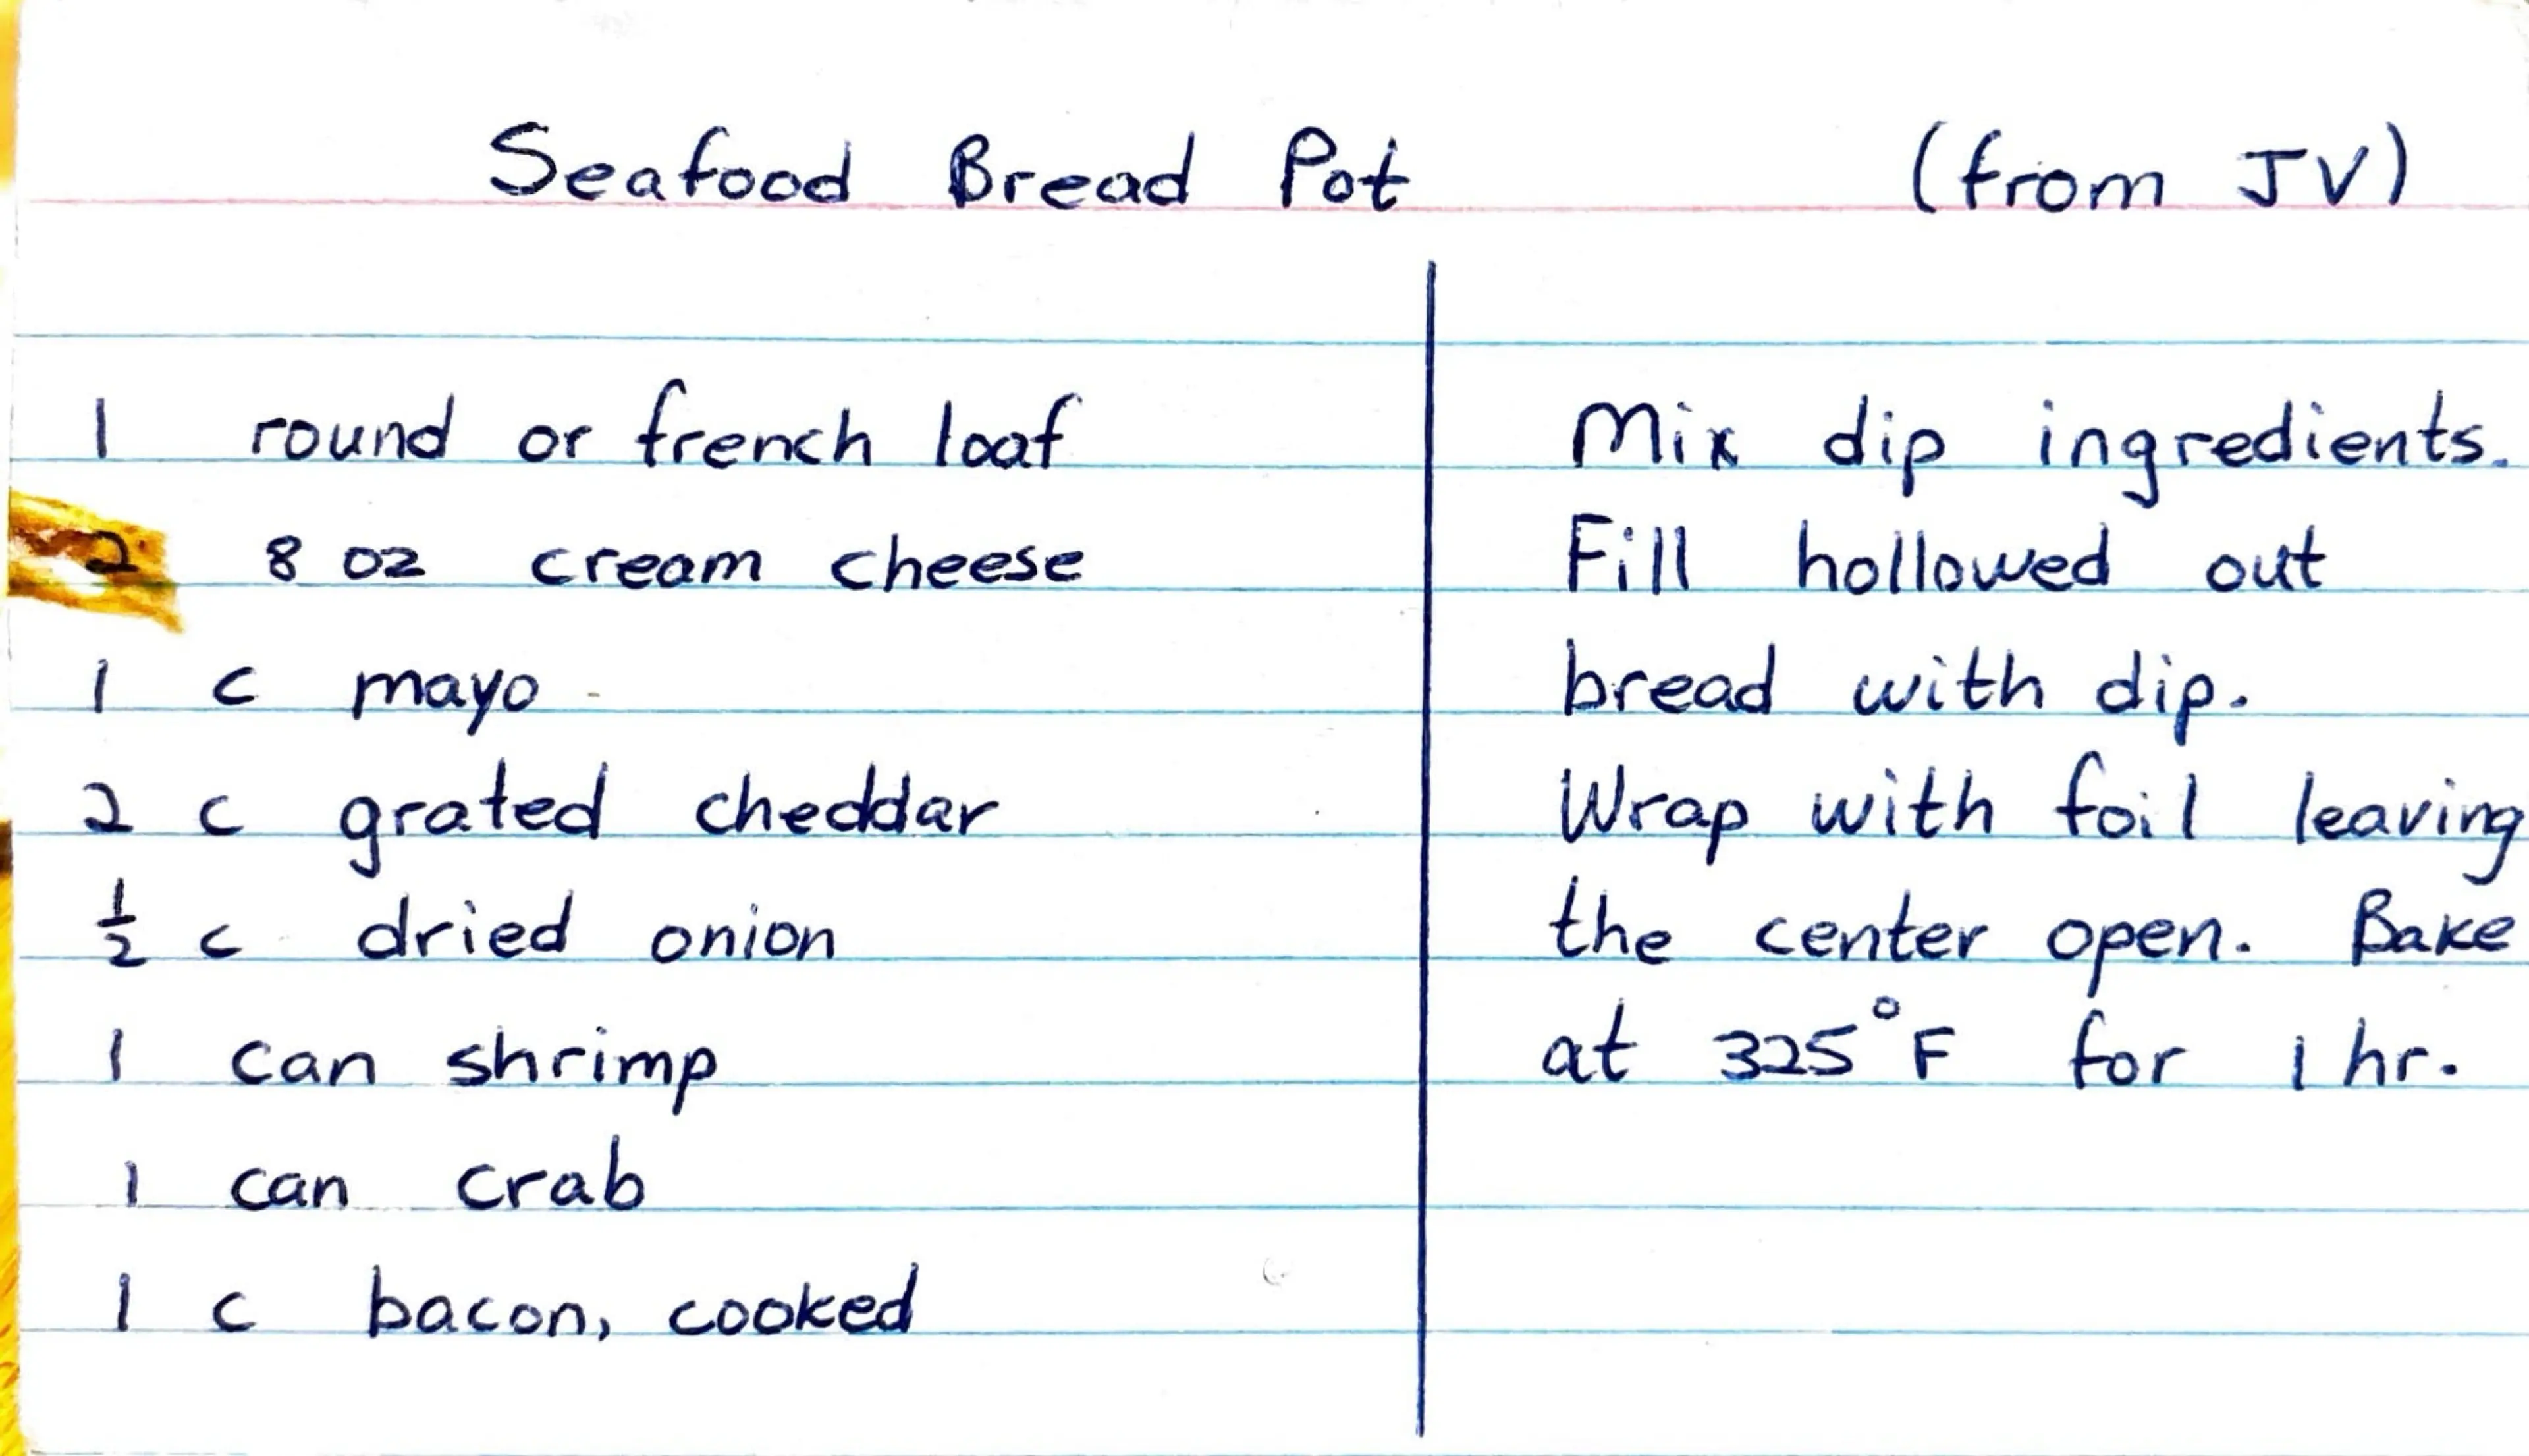 Seafood Bread Pot (from JV)
1 round or french loaf
2 8 oz cream cheese
1 c mayo
2 c grated cheddar
½ c dried onion
1 can shrimp
1 can crab
1 c bacon, cooked
Mix dip ingredients.
Fill hollowed out
bread with dip.
Wrap with foil leaving
the center open. Bake
at 325°F for 1 hr.